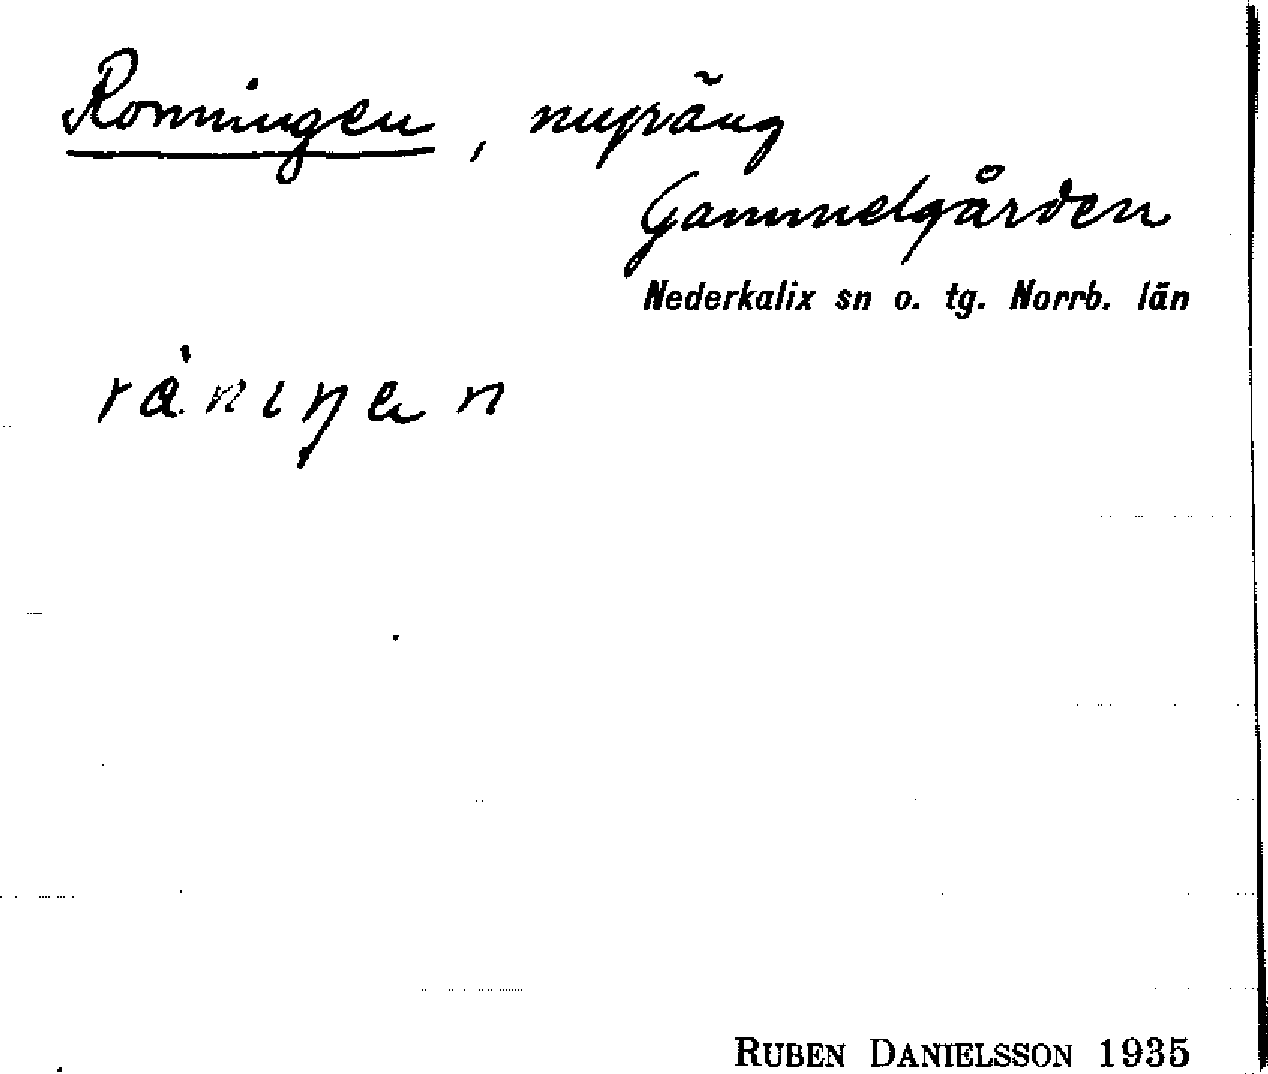 Ronningen, myräng
Gammelgården
Nederkalix sn o. tg. Norrb. län
RUBEN DANIELSSON 1935